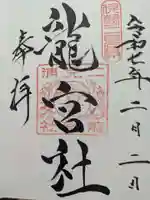 令和七年二月二日
龍宮社
奉拝